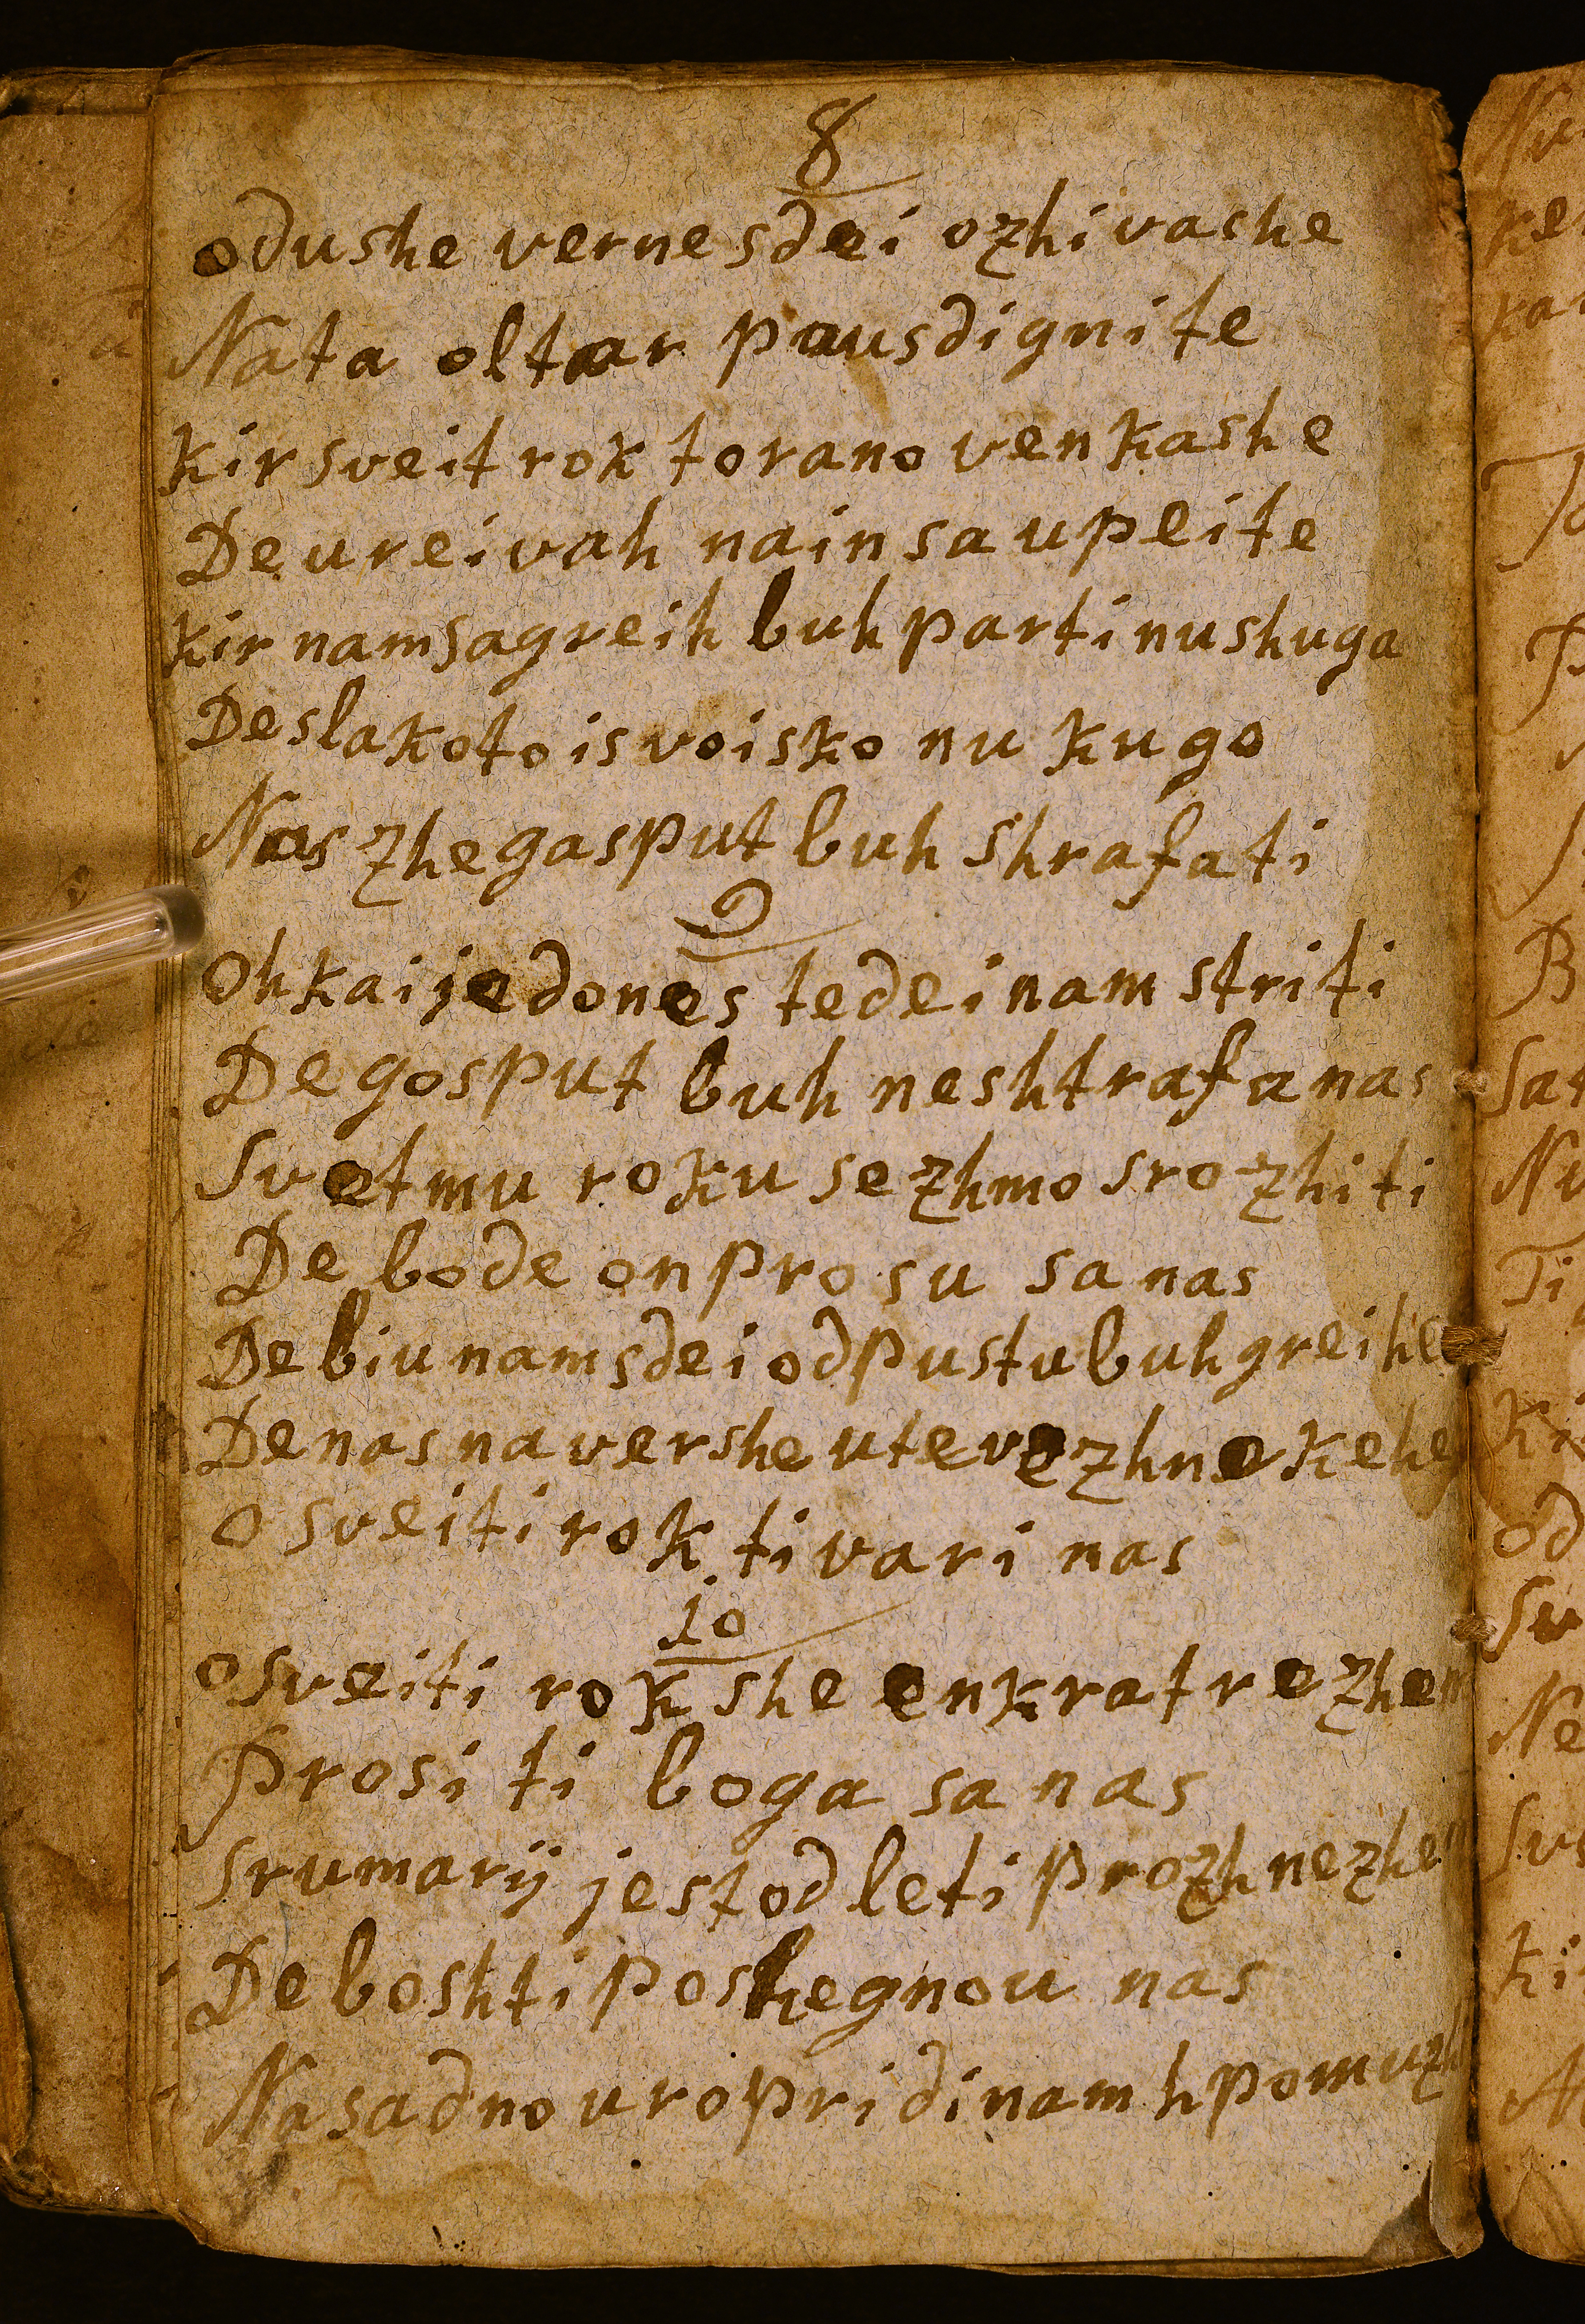 8
odushe vernesdei ozhivashe
Nata oltar pausdignite
kir sveit rok to rano venkashe
De ureivah nain sa upeite
kir nam sagreih buh parti nu shuga
De slakoto is voisko nu kugo
Nas zhe gasput buh shrafati
9
Oh kai je dones te dei nam striti
De gosput buh neshtrafa nas
Svetmu roku se zhmo srozhiti
De bode on prosu sa nas
De biu nam sdei odpustu buh greihe
De nas na vershe ute vezhne kehe
O sveiti rok ti vari nas
10
O sveiti rok she enkrat rezhem
Prosi ti boga sa nas
Srumarij jest od leti prozh nezhe
De bosh ti poshegnou nas
Na sadno uro pridi nam h pomuzh